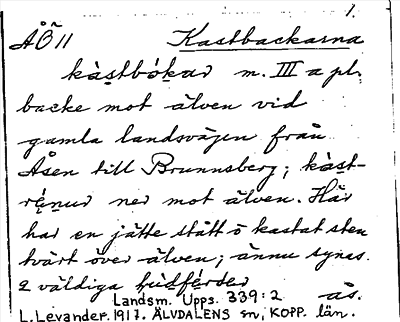 1.
ÅÖ 11 Kastbackarna
kàstbókar m. III a pl.
backe mot älven vid
gamla landsvägen från
Åsen till Brunnsberg; kàst-
rę́nur ner mot älven. Här
har en jätte stått o kastat sten
tvärt över älven; ännu synas
2 väldiga
Landsm. Upps. 339:2 ås.
L. Levander. 1917. ÄLVDALENS sn, KOPP. län.